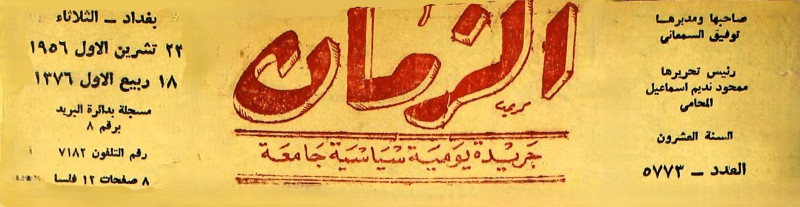 صاحبها ومديرها
توفيق السمعاني
رئيس تحريرها
محمود نديم اسماعيل
المحامي
السنة العشرون
العدد ــ ٥٧٧٣
الزمان
جريدة يومية سياسية جامعة
بغداد ــ الثلاثاء
٢٣ تشرين الاول ١٩٥٦
١٨ ربيع الاول ١٣٧٦
مسجلة بدائرة البريد
برقم ٨
رقم التلفون ٧١٨٢
٨ صفحات ١٢ فلسا